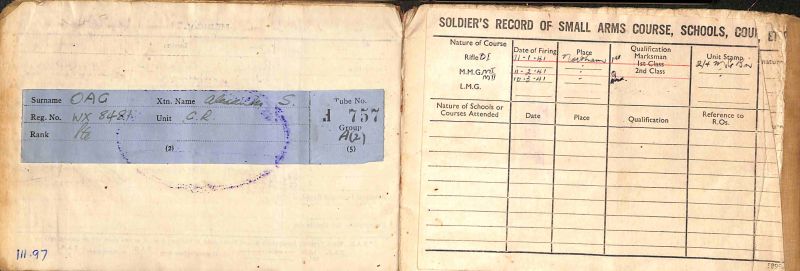 Surname OAG Xtn. Name S. Tube No.
Reg. No. WX 8481 Unit G.R. H 757
Rank Group
A(2)
(2) (5)
111.97
SOLDIER'S RECORD OF SMALL ARMS COURSE, SCHOOLS,
Nature of Course Date of Firing Place Qualification Unit Stamp
Marksman
1st Class
2nd Class
Rifle D1 11-1-41 Northam 1st
M.M.G. MII 11-2-41 "
MII 10-3-41 "
L.M.G.
Nature of Schools or Courses Attended Date Place Qualification Reference to R.Os.